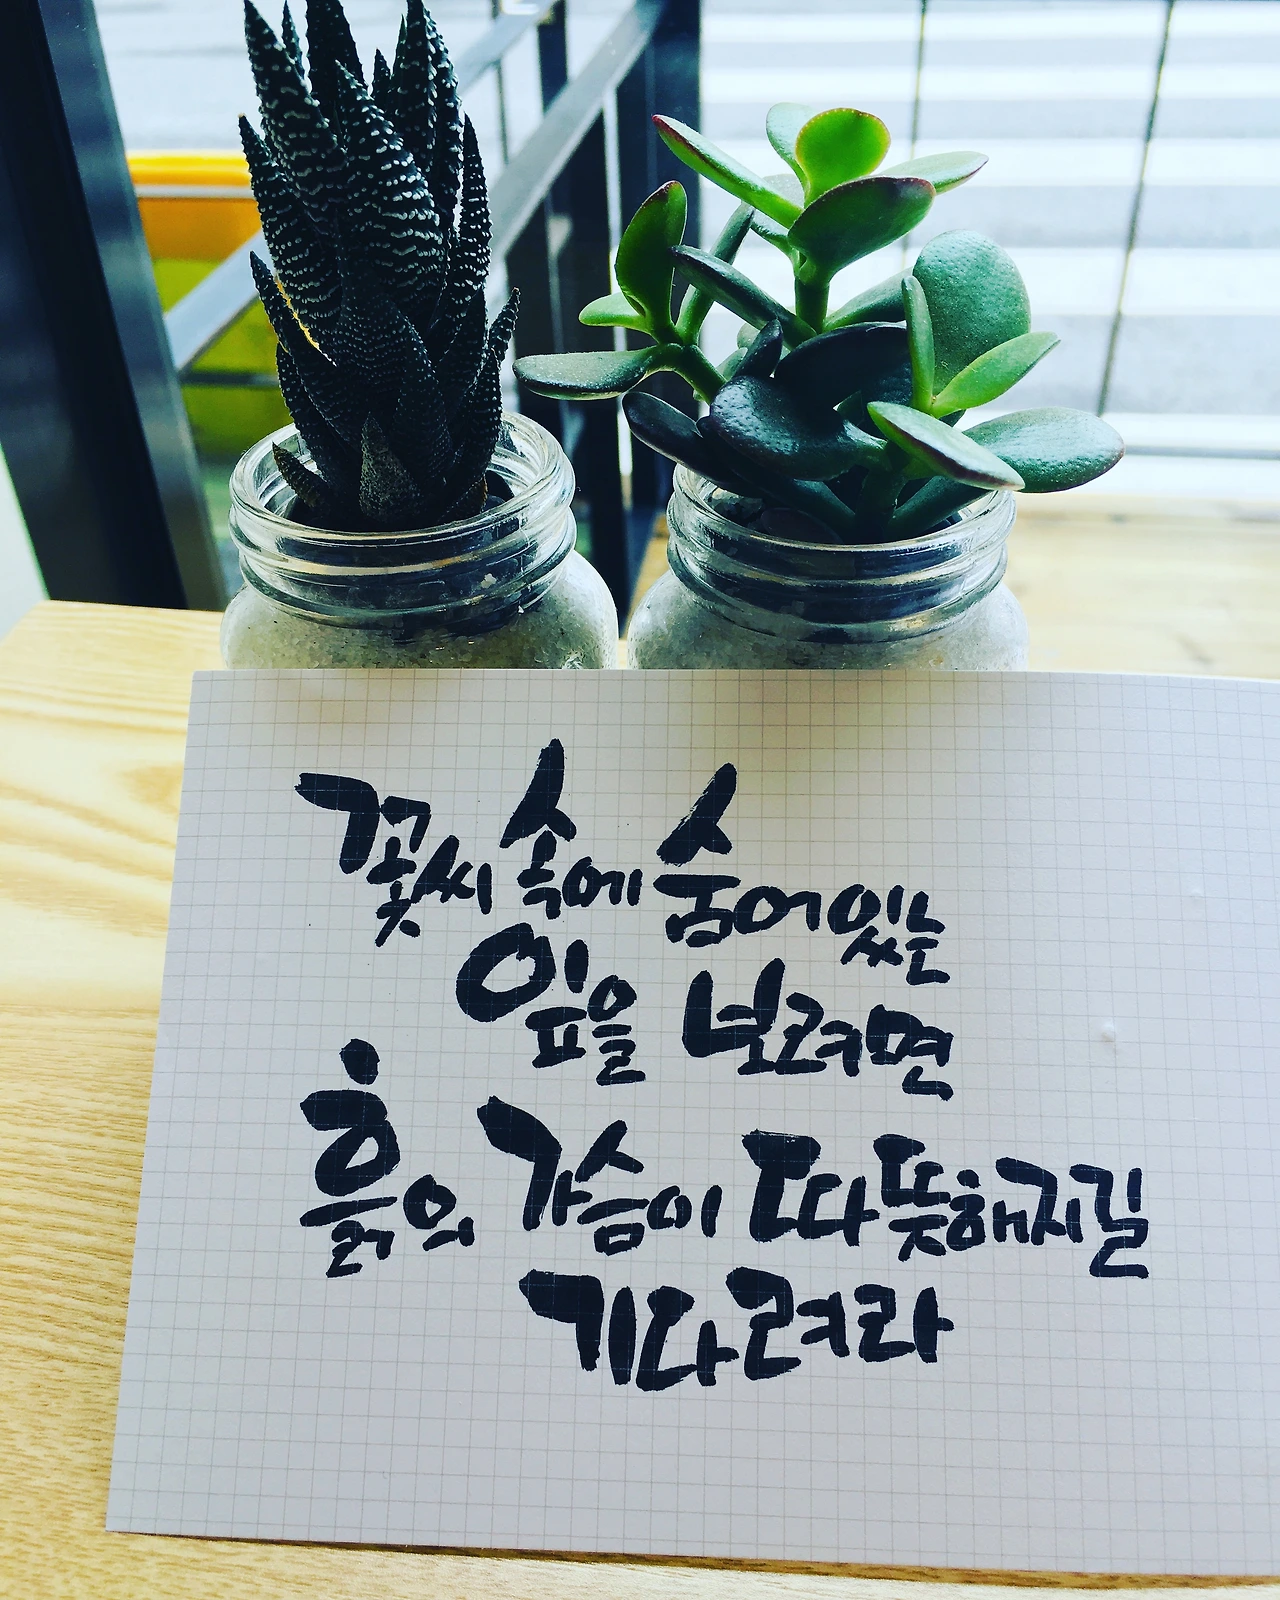 꽃씨 속에 숨어있는
잎을 보려면
흙의 가슴이 따뜻해지길
기다려라